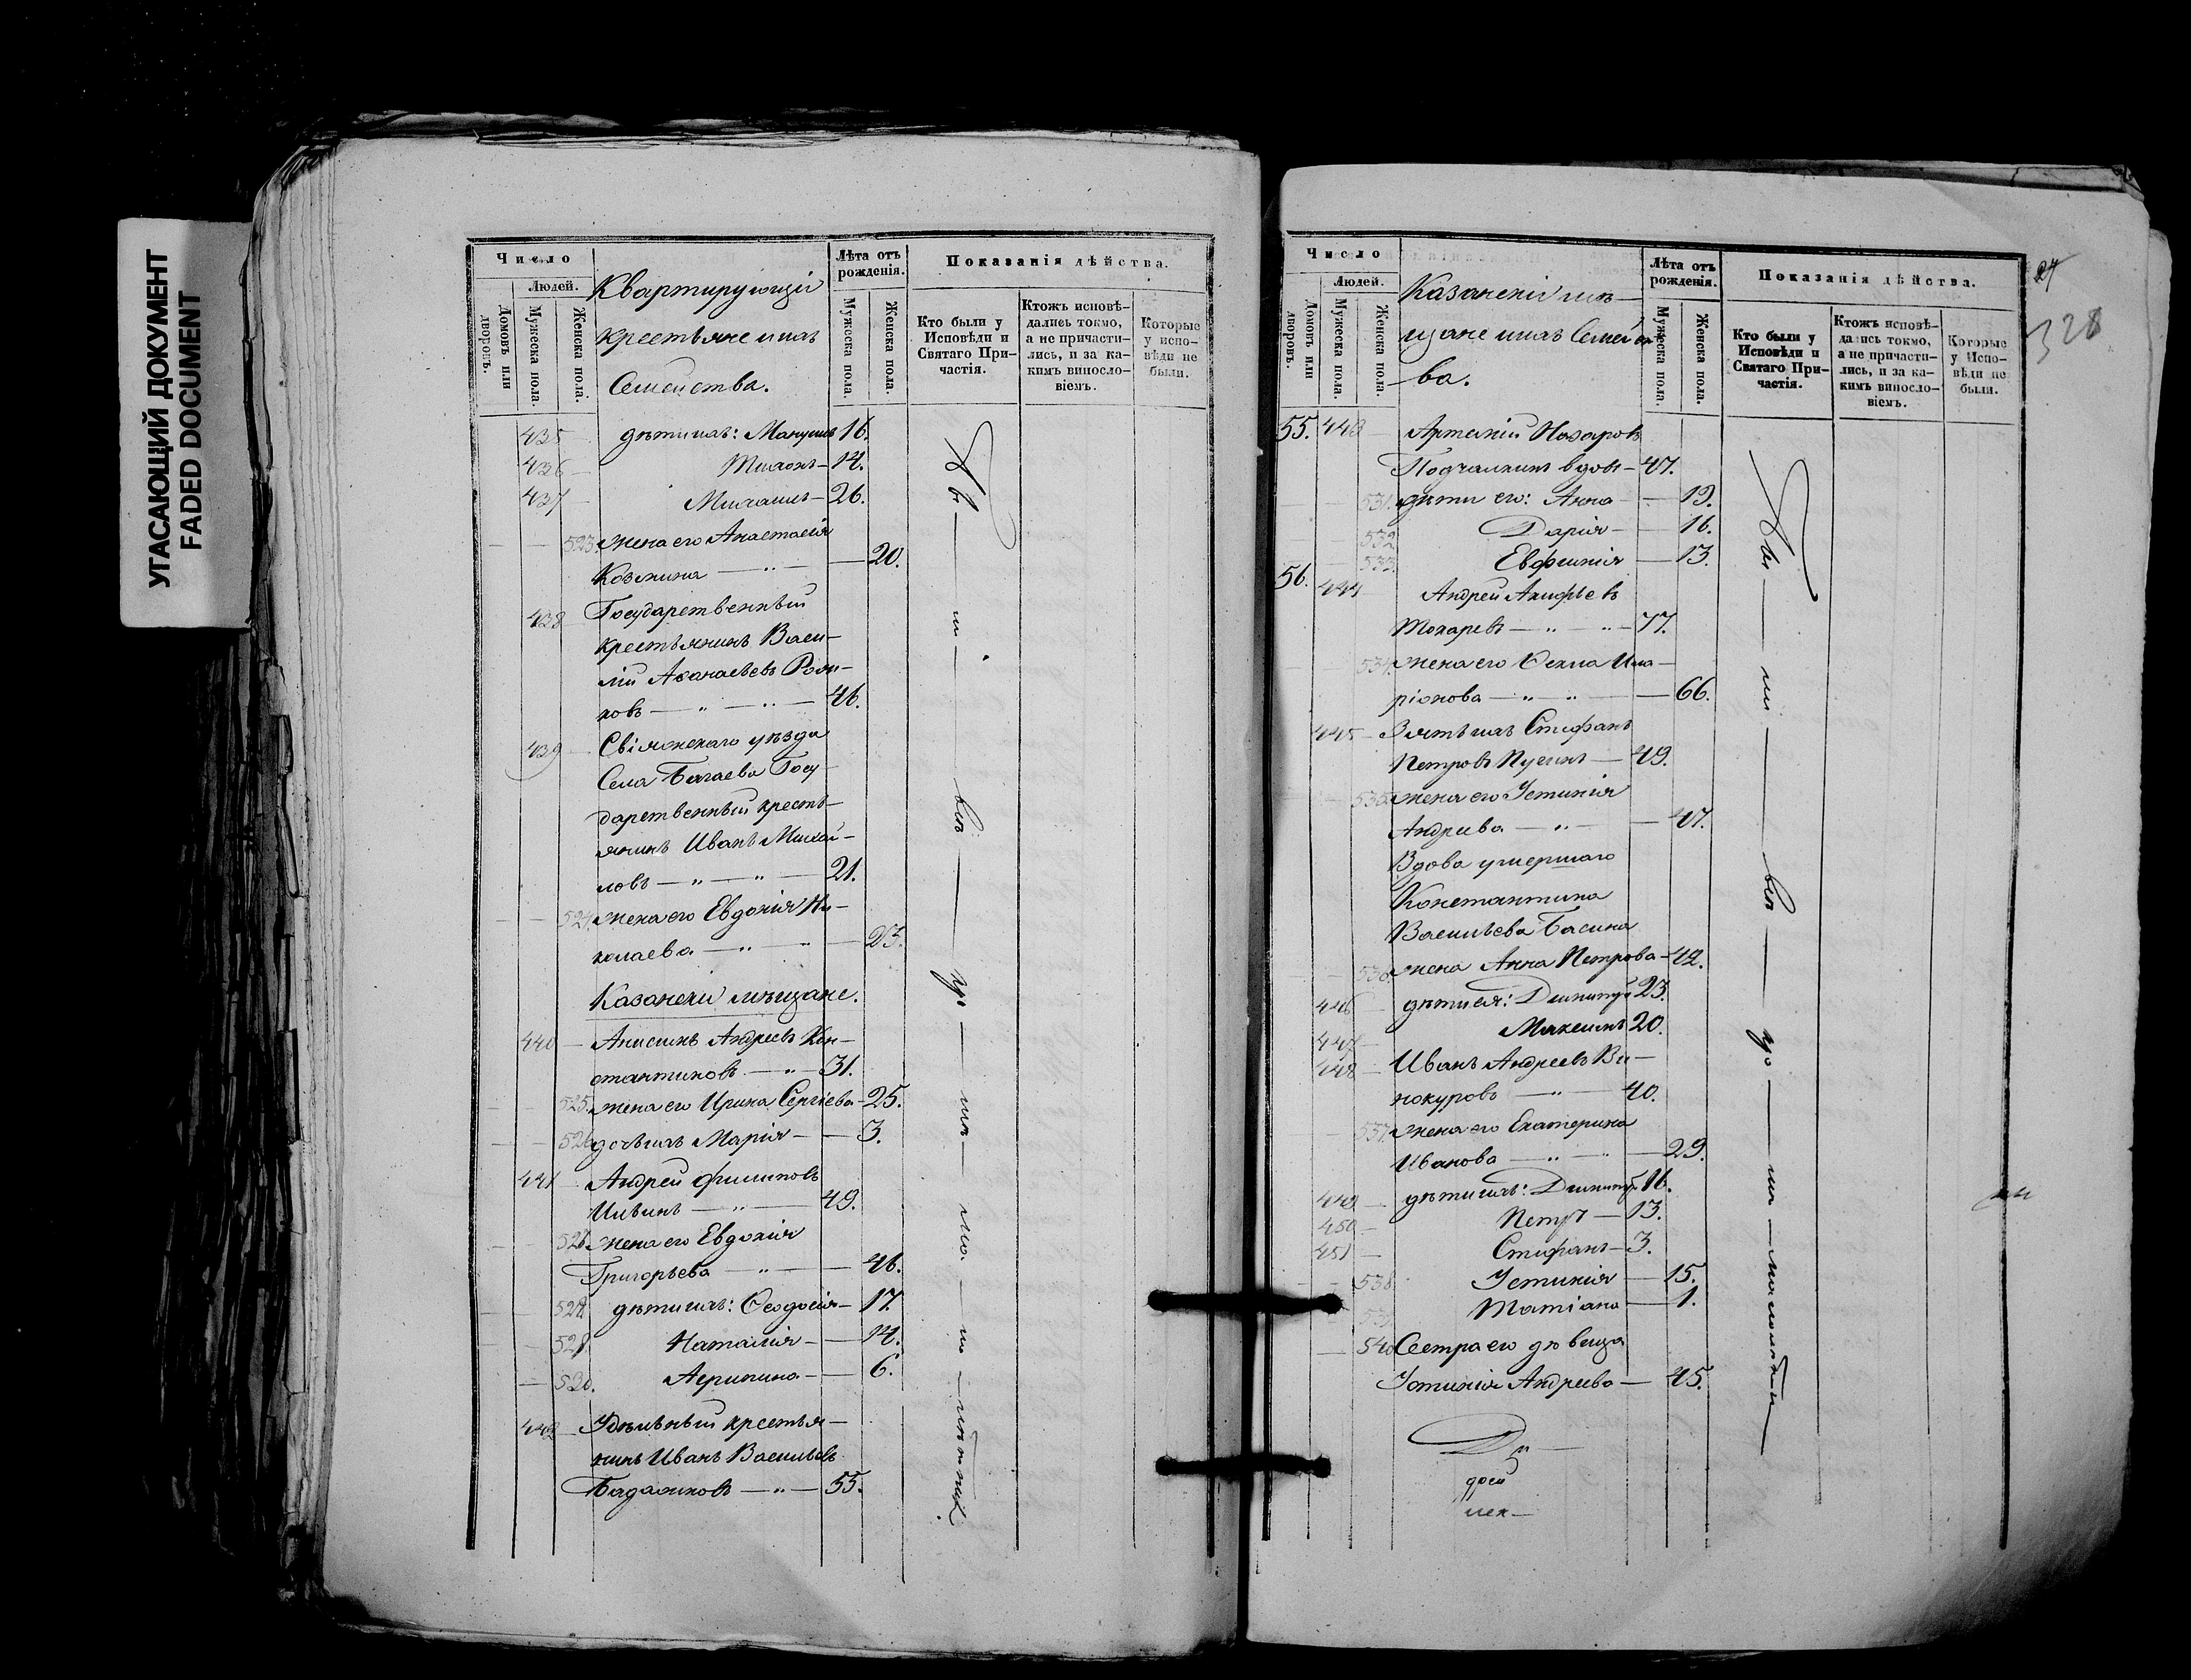 УГАСАЮЩИЙ ДОКУМЕНТ
FADED DOCUMENT
Число
Людей.
Домовъ или дворовъ.
Мужеска пола.
Женска пола.
Квартирующіи
крестьяне и ихъ
Семейства.
Лѣта отъ рожденія.
Мужеска пола.
Женска пола.
Показанія дѣйства.
Кто были у Исповѣди и Святаго При-частія.
Ктожъ исповѣ-дались токмо, а не причасти-лись, и за ка-кимъ винosло-віемъ.
Которые у испо-вѣди не были.
435 дѣти ихъ: 16.
436 14.
437 26.
523. жена его Анастасія
Козмина — " — 20.
438 Государственный
крестьянинъ Васи-
лій
ковъ — " — " — 46.
439 Свіяжскаго уѣзда
Села Багаева Госу-
дарственный кресть-
янинъ Иванъ Михай-
ловъ — " — " — 21.
524. жена его Евдокія Ни-
колаева — " — " — 23.
Казанскіи мѣщане.
440 Анисимъ Андреевъ Кон-
стантиновъ — " — 31.
525. жена его Ирина Сергіева — 25.
526 дочь ихъ Марія — 3.
441 Андрей Филиповъ
Ильинъ — " — 49.
527. жена его Евдокія
Григорьева — " — 46.
528. дѣти ихъ: Ѳеодосія — 17.
529. Наталія — 14.
530. Агрипина — 6.
442 Удѣльный крестья-
нинъ Иванъ Васильевъ
— " — 55.
24
328
Число
Людей.
Домовъ или дворовъ.
Мужеска пола.
Женска пола.
Казанскіи мѣ-
щане и ихъ Семейст-
ва.
Лѣта отъ рожденія.
Мужеска пола.
Женска пола.
Показанія дѣйства.
Кто были у Исповѣди и Святаго При-частія.
Ктожъ исповѣ-дались токмо, а не причасти-лись, и за ка-кимъ винosло-віемъ.
Которые у Испо-вѣди не были.
55. 443 Артемій Назаровъ
вдовъ — 47.
531. дѣти его: Анна — 19.
532 Дарія — 16.
533. Евфимія — 13.
56. 444 Андрей Акифьевъ
Токаревъ — " — " — 77.
534. жена его Ѳекла Ила-
ріонова — " — " — 66.
445 Зять ихъ Стефанъ
Петровъ — 49.
535. жена его Устинія
Андреева — " — 47.
Вдова умершаго
Константина
Васильева Басина
536. жена Анна Петрова — 42.
446 дѣти ея: Димитрій 23.
447 Максимъ 20.
448 Иванъ Андреевъ Ви-
нокуровъ — " — 40.
537. жена его Екатерина
Иванова — " — 29.
449 дѣти ихъ: Димитрій 16.
450 Петръ — 13.
451 Стефанъ — 3.
538 Устинія — 15.
539 Татіана — 1.
540 Сестра его дѣвица
Устинія Андреева — 45.